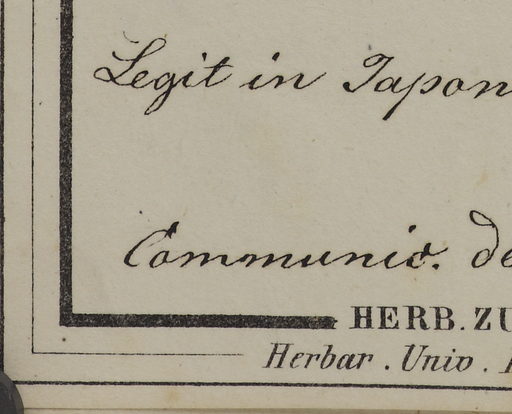 Legit in Japon
Communic. de
HERB. ZU
Herbar. Univ.